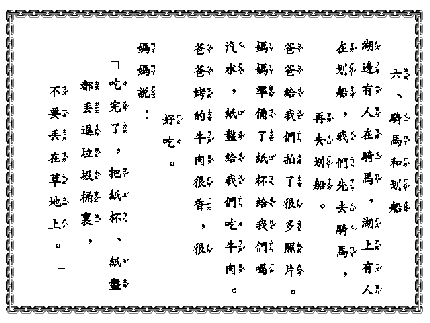 六、騎馬和划船
湖邊有人在騎馬，湖上有人
在划船，我們先去騎馬，
再去划船。
爸爸給我們拍了很多照片。
媽媽準備了紙杯給我們喝
汽水，紙盤給我們吃牛肉。
爸爸烤的牛肉很香，很
好吃。
媽媽說：
「吃完了，把紙杯、紙盤
都丟進垃圾桶裏，
不要丟在草地上。」